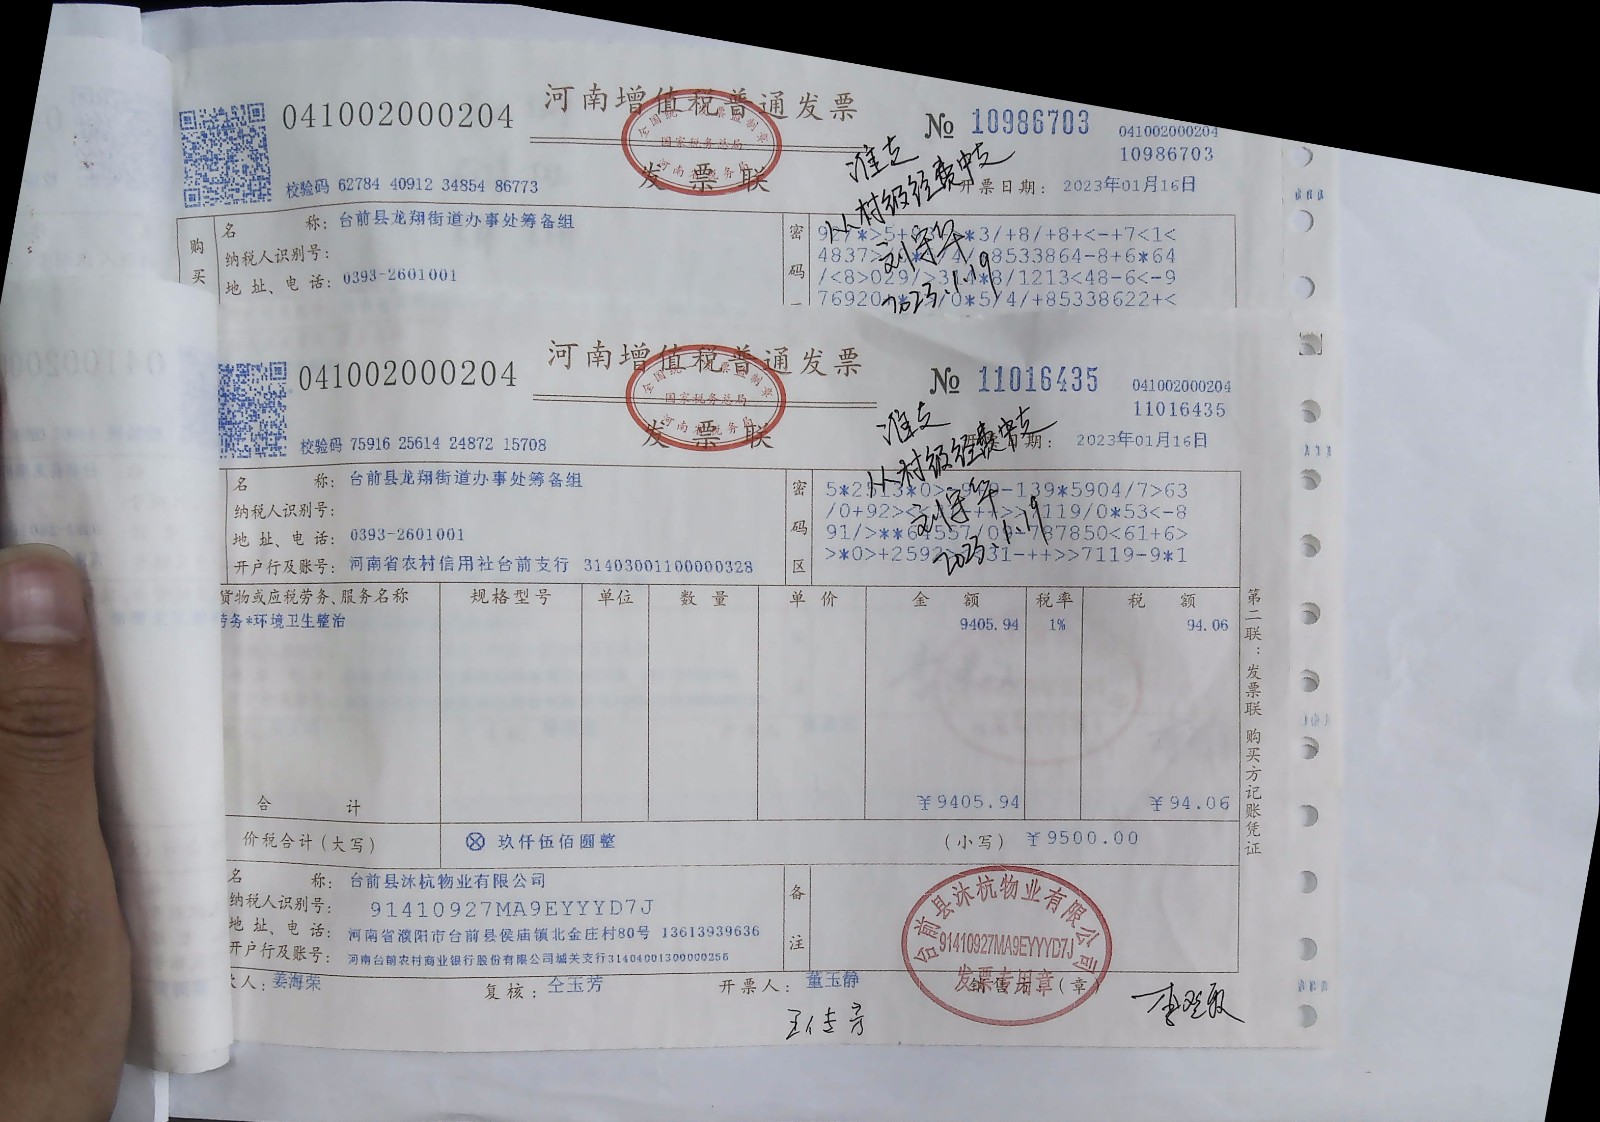 041002000204
河南增值税普通发票
发票联
全国统一发票监制章
国家税务总局
河南省税务局
№ 10986703
041002000204
10986703
校验码 62784 40912 34854 86773
开票日期: 2023年01月16日
准支
从村级经费中支
刘守华
2023.1.19
购买
名 称: 台前县龙翔街道办事处筹备组
纳税人识别号:
地址、电话: 0393-2601001
密码
041002000204
河南增值税普通发票
发票联
全国统一发票监制章
国家税务总局
河南省税务局
№ 11016435
041002000204
11016435
校验码 75916 25614 24872 15708
2023年01月16日
准支
从村级经费中支
刘守华
2023.1.19
名 称: 台前县龙翔街道办事处筹备组
纳税人识别号:
地址、电话: 0393-2601001
开户行及账号: 河南省农村信用社台前支行 31403001100000328
密码区
>*0>+259
31-++>>7119-9*1
货物或应税劳务、服务名称 规格型号 单位 数量 单价 金额 税率 税额
劳务*环境卫生整治 9405.94 1% 94.06
合计 ¥9405.94 ¥94.06
价税合计(大写) ⊗ 玖仟伍佰圆整 (小写) ¥9500.00
名 称: 台前县沐杭物业有限公司
纳税人识别号: 91410927MA9EYYYD7J
地址、电话: 河南省濮阳市台前县侯庙镇北金庄村80号 13613939636
开户行及账号: 河南台前农村商业银行股份有限公司城关支行31404001300000256
备注
台前县沐杭物业有限公司
91410927MA9EYYYD7J
发票专用章
人: 姜海荣 复核: 仝玉芳 开票人: 董玉静 (章)
第二联:发票联 购买方记账凭证